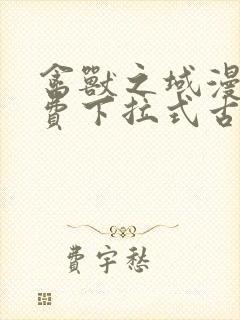 禽獸之域漫
費下拉式古
費宇愁